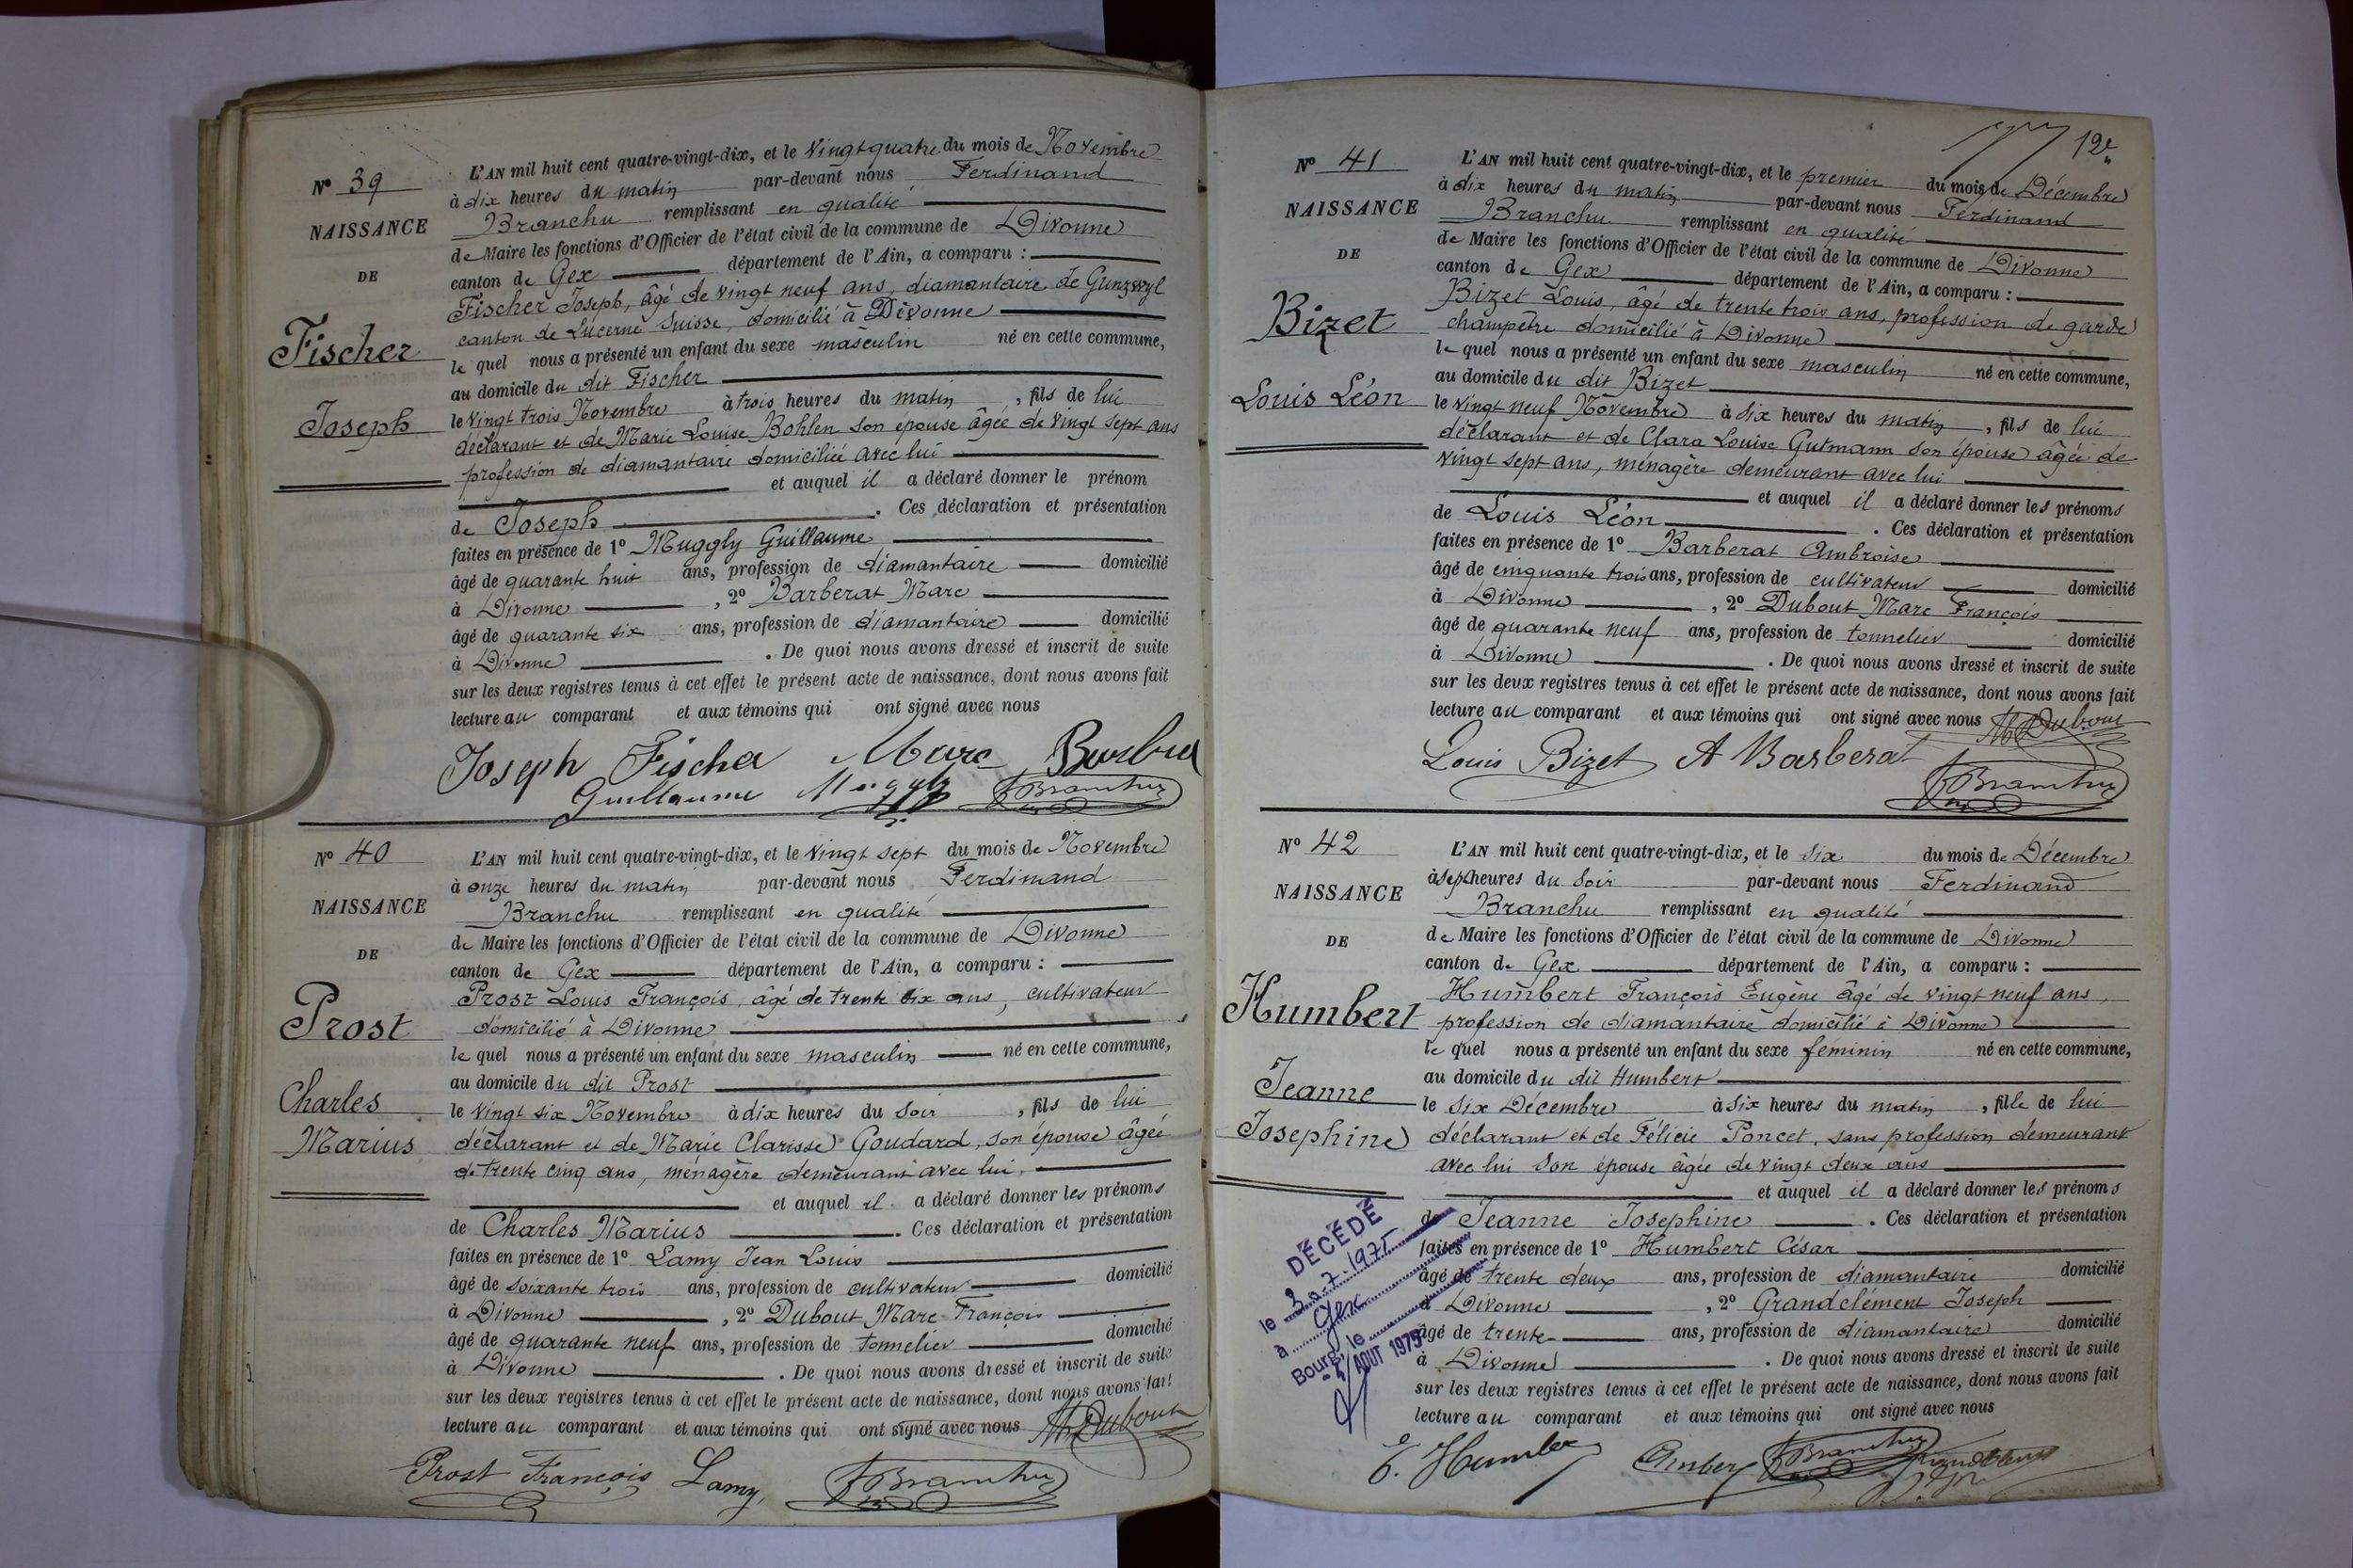 Nº 39
NAISSANCE
DE
Fischer
Joseph
L'AN mil huit cent quatre-vingt-dix, et le vingt quatre du mois de Novembre
à dix heures du matin par-devant nous Ferdinand
Branchu remplissant en qualité
de Maire les fonctions d'Officier de l'état civil de la commune de Divonne
canton de Gex département de l'Ain, a comparu :
Fischer Joseph, âgé de vingt neuf ans, diamantaire de Gunzwyl
canton de Lucerne Suisse, domicilié à Divonne
le quel nous a présenté un enfant du sexe masculin né en cette commune,
au domicile du dit Fischer
le vingt trois Novembre à trois heures du matin, fils de lui
déclarant et de Marie Louise Bohlen son épouse âgée de vingt sept ans
profession de diamantaire domiciliée avec lui
et auquel il a déclaré donner le prénom
de Joseph. Ces déclaration et présentation
faites en présence de 1º Muggly Guillaume
âgé de quarante huit ans, profession de diamantaire domicilié
à Divonne, 2º Barberat Marc
âgé de quarante six ans, profession de diamantaire domicilié
à Divonne. De quoi nous avons dressé et inscrit de suite
sur les deux registres tenus à cet effet le présent acte de naissance, dont nous avons fait
lecture au comparant et aux témoins qui ont signé avec nous
Joseph Fischer Marc
Guillaume Branchu
Nº 40
NAISSANCE
DE
Prost
Charles
Marius
L'AN mil huit cent quatre-vingt-dix, et le vingt sept du mois de Novembre
à onze heures du matin par-devant nous Ferdinand
Branchu remplissant en qualité
de Maire les fonctions d'Officier de l'état civil de la commune de Divonne
canton de Gex département de l'Ain, a comparu :
Prost Louis François, âgé de trente six ans, cultivateur
domicilié à Divonne
le quel nous a présenté un enfant du sexe masculin né en cette commune,
au domicile du dit Prost
le vingt six Novembre à dix heures du soir, fils de lui
déclarant et de Marie Clarisse Goudard, son épouse âgée
de trente cinq ans, ménagère demeurant avec lui.
et auquel il a déclaré donner les prénoms
de Charles Marius. Ces déclaration et présentation
faites en présence de 1º Lamy Jean Louis
âgé de soixante trois ans, profession de cultivateur domicilié
à Divonne, 2º Dubout Marc François
âgé de quarante neuf ans, profession de tonnelier domicilié
à Divonne. De quoi nous avons dressé et inscrit de suite
sur les deux registres tenus à cet effet le présent acte de naissance, dont nous avons fait
lecture au comparant et aux témoins qui ont signé avec nous M Dubout
Prost François Lamy Branchu
12e
Nº 41
NAISSANCE
DE
Bizet
Louis Léon
L'AN mil huit cent quatre-vingt-dix, et le premier du mois de Décembre
à dix heures du matin par-devant nous Ferdinand
Branchu remplissant en qualité
de Maire les fonctions d'Officier de l'état civil de la commune de Divonne
canton de Gex département de l'Ain, a comparu :
Bizet Louis, âgé de trente trois ans, profession de garde
champêtre domicilié à Divonne
le quel nous a présenté un enfant du sexe masculin né en cette commune,
au domicile du dit Bizet
le vingt neuf Novembre à six heures du matin, fils de lui
déclarant et de Clara Louise Gutmann son épouse âgée de
vingt sept ans, ménagère demeurant avec lui
et auquel il a déclaré donner les prénoms
de Louis Léon. Ces déclaration et présentation
faites en présence de 1º Barberat Ambroise
âgé de cinquante trois ans, profession de cultivateur domicilié
à Divonne, 2º Dubout Marc François
âgé de quarante neuf ans, profession de tonnelier domicilié
à Divonne. De quoi nous avons dressé et inscrit de suite
sur les deux registres tenus à cet effet le présent acte de naissance, dont nous avons fait
lecture au comparant et aux témoins qui ont signé avec nous M Dubout
Louis Bizet A Barberat
Branchu
Nº 42
NAISSANCE
DE
Humbert
Jeanne
Josephine
L'AN mil huit cent quatre-vingt-dix, et le six du mois de Décembre
à sept heures du soir par-devant nous Ferdinand
Branchu remplissant en qualité
de Maire les fonctions d'Officier de l'état civil de la commune de Divonne
canton de Gex département de l'Ain, a comparu :
Humbert François Eugène âgé de vingt neuf ans,
profession de diamantaire domicilié à Divonne
le quel nous a présenté un enfant du sexe féminin né en cette commune,
au domicile du dit Humbert
le six Décembre à six heures du matin, fille de lui
déclarant et de Félicie Poncet, sans profession demeurant
avec lui son épouse âgée de vingt deux ans
et auquel il a déclaré donner les prénoms
de Jeanne Josephine. Ces déclaration et présentation
faites en présence de 1º Humbert César
âgé de trente deux ans, profession de diamantaire domicilié
à Divonne, 2º Grandclément Joseph
âgé de trente ans, profession de diamantaire domicilié
à Divonne. De quoi nous avons dressé et inscrit de suite
sur les deux registres tenus à cet effet le présent acte de naissance, dont nous avons fait
lecture au comparant et aux témoins qui ont signé avec nous
DÉCÉDÉ
le 7.1975
à Gex
Bourg, le
AOUT 1975
E. Humbert Branchu